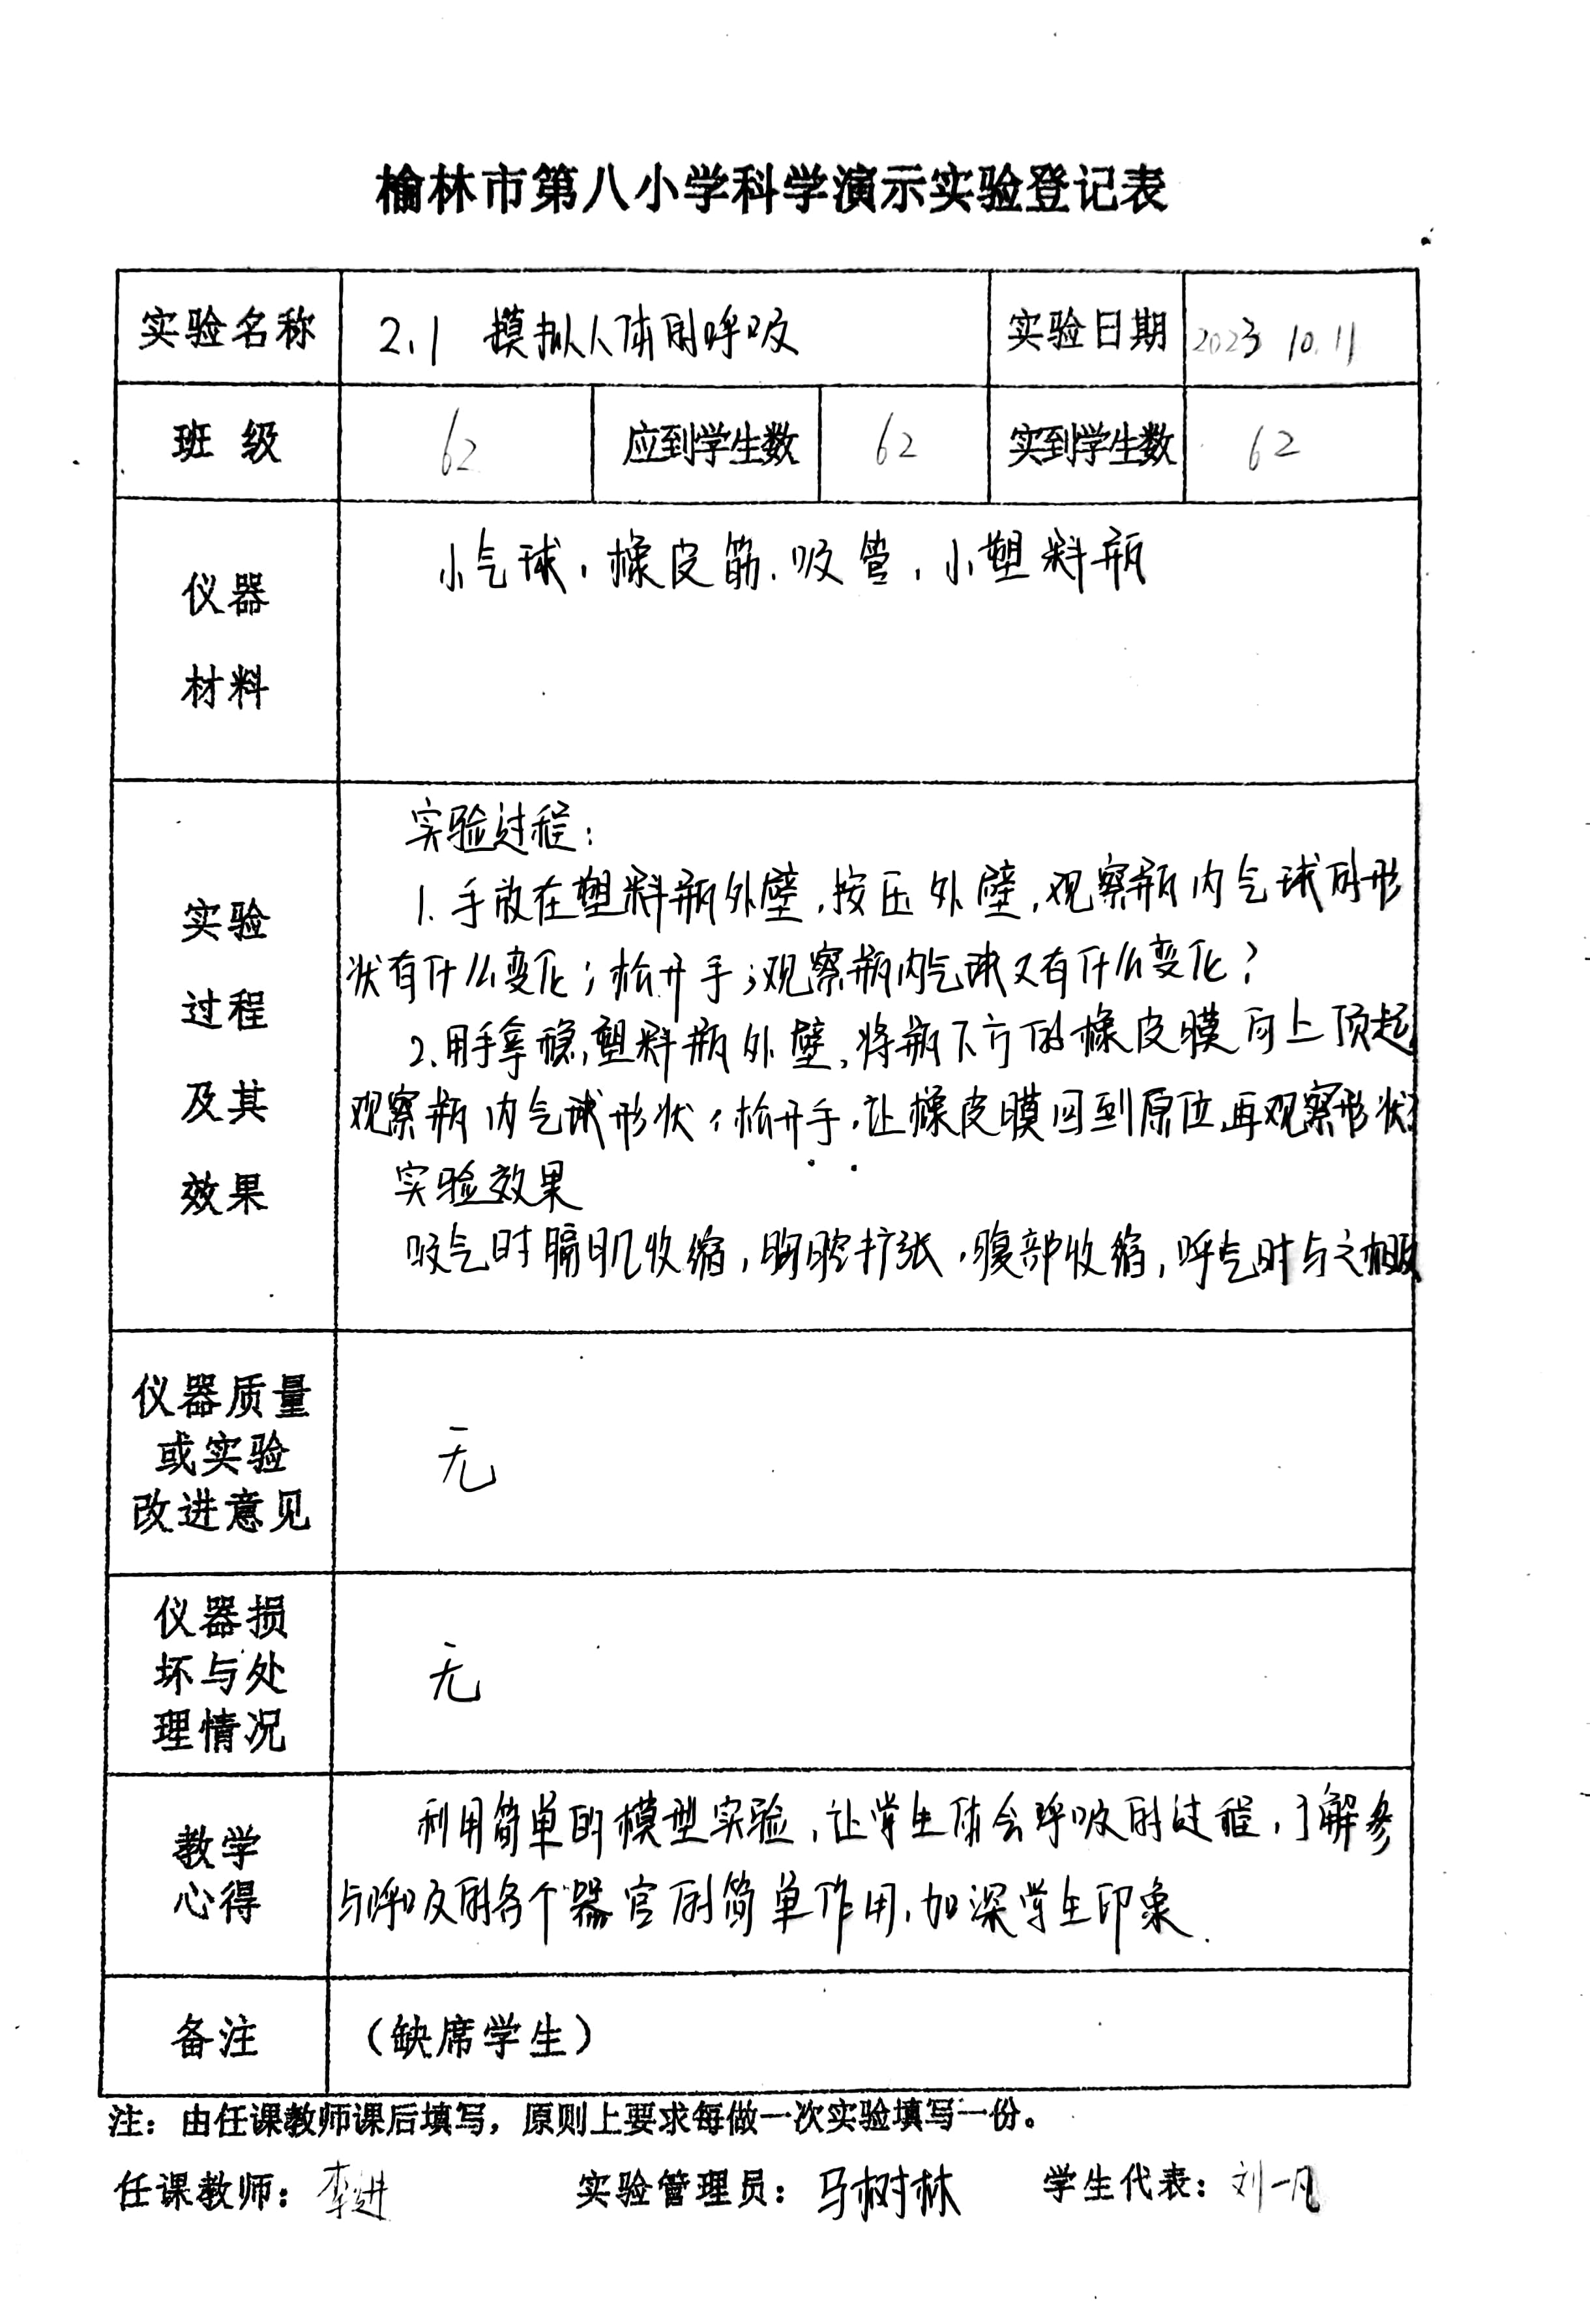 榆林市第八小学科学演示实验登记表
实验名称 2.1 模拟人体的呼吸 实验日期 2023 10.11
班 级 62 应到学生数 62 实到学生数 62
仪器
材料
小气球,橡皮筋、吸管,小塑料瓶
实验
过程
及其
效果
实验过程:
1.手放在塑料瓶外壁,按压外壁,观察瓶内气球的形
状有什么变化;松开手;观察瓶内气球又有什么变化?
2.用手拿稳,塑料瓶外壁,将瓶下方的橡皮膜向上顶起
观察瓶内气球形状,松开手,让橡皮膜回到原位再观察形状
实验效果
吸气时膈肌收缩,胸腔扩张,腹部收缩,呼气时与之相反
仪器质量
或实验
改进意见
无
仪器损
坏与处
理情况
无
教学
心得
利用简单的模型实验,让学生体会呼吸的过程,了解参
与呼吸的各个器官的简单作用,加深学生印象.
备注 (缺席学生)
注:由任课教师课后填写,原则上要求每做一次实验填写一份。
任课教师:李进 实验管理员:马树林 学生代表:刘一凡